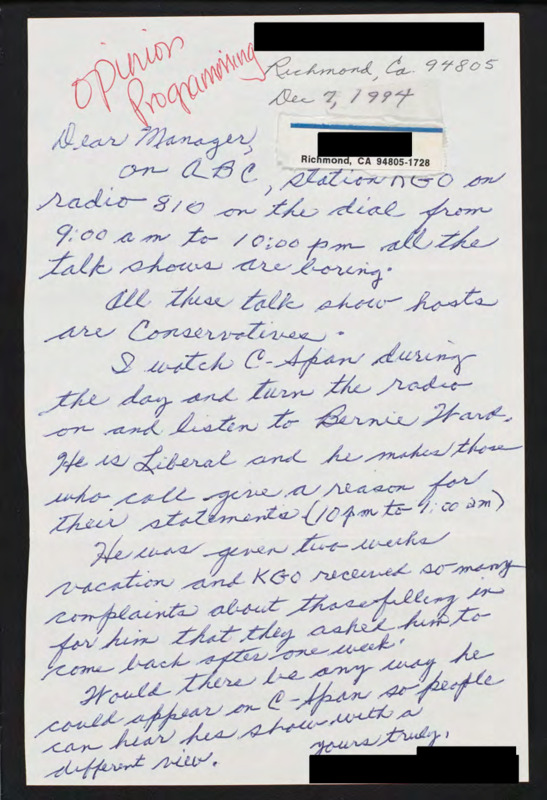 Opinion
Programming
Richmond, Ca. 94805
Dec 7, 1994
Richmond, CA 94805-1728
Dear Manager,
on ABC, station KGO on
radio 810 on the dial from
9:00 am to 10:00 pm all the
talk shows are boring.
All these talk show hosts
are Conservatives.
I watch C-Span during
the day and turn the radio
on and listen to Bernie Ward.
He is Liberal and he makes those
who call give a reason for
their statements (10 pm to 1:00 am)
He was given two weeks
vacation and KGO received so many
complaints about those filling in
for him that they asked him to
come back after one week.
Would there be any way he
could appear on C-Span so people
can hear his show with a
different view.
yours truly,